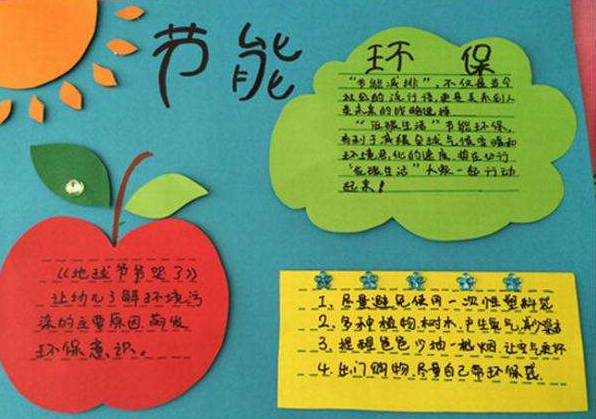 节能
环保
"节能减排",不仅是当今
社会的流行语,更是关系到人
类未来的战略选择
"低碳生活"节能环保,
有利于减缓全球气候变暖和
环境恶化的速度,势在必行
"低碳生活"大家一起行动
起来!
《地球爷爷哭了》
让幼儿了解环境污
染的主要原因,萌发
环保意识。
1、尽量避免使用一次性塑料袋
2、多种植物,树木,产生氧气,减少
3、提醒爸爸少抽一根烟,让空气
4、出门购物,尽量自己带环保袋